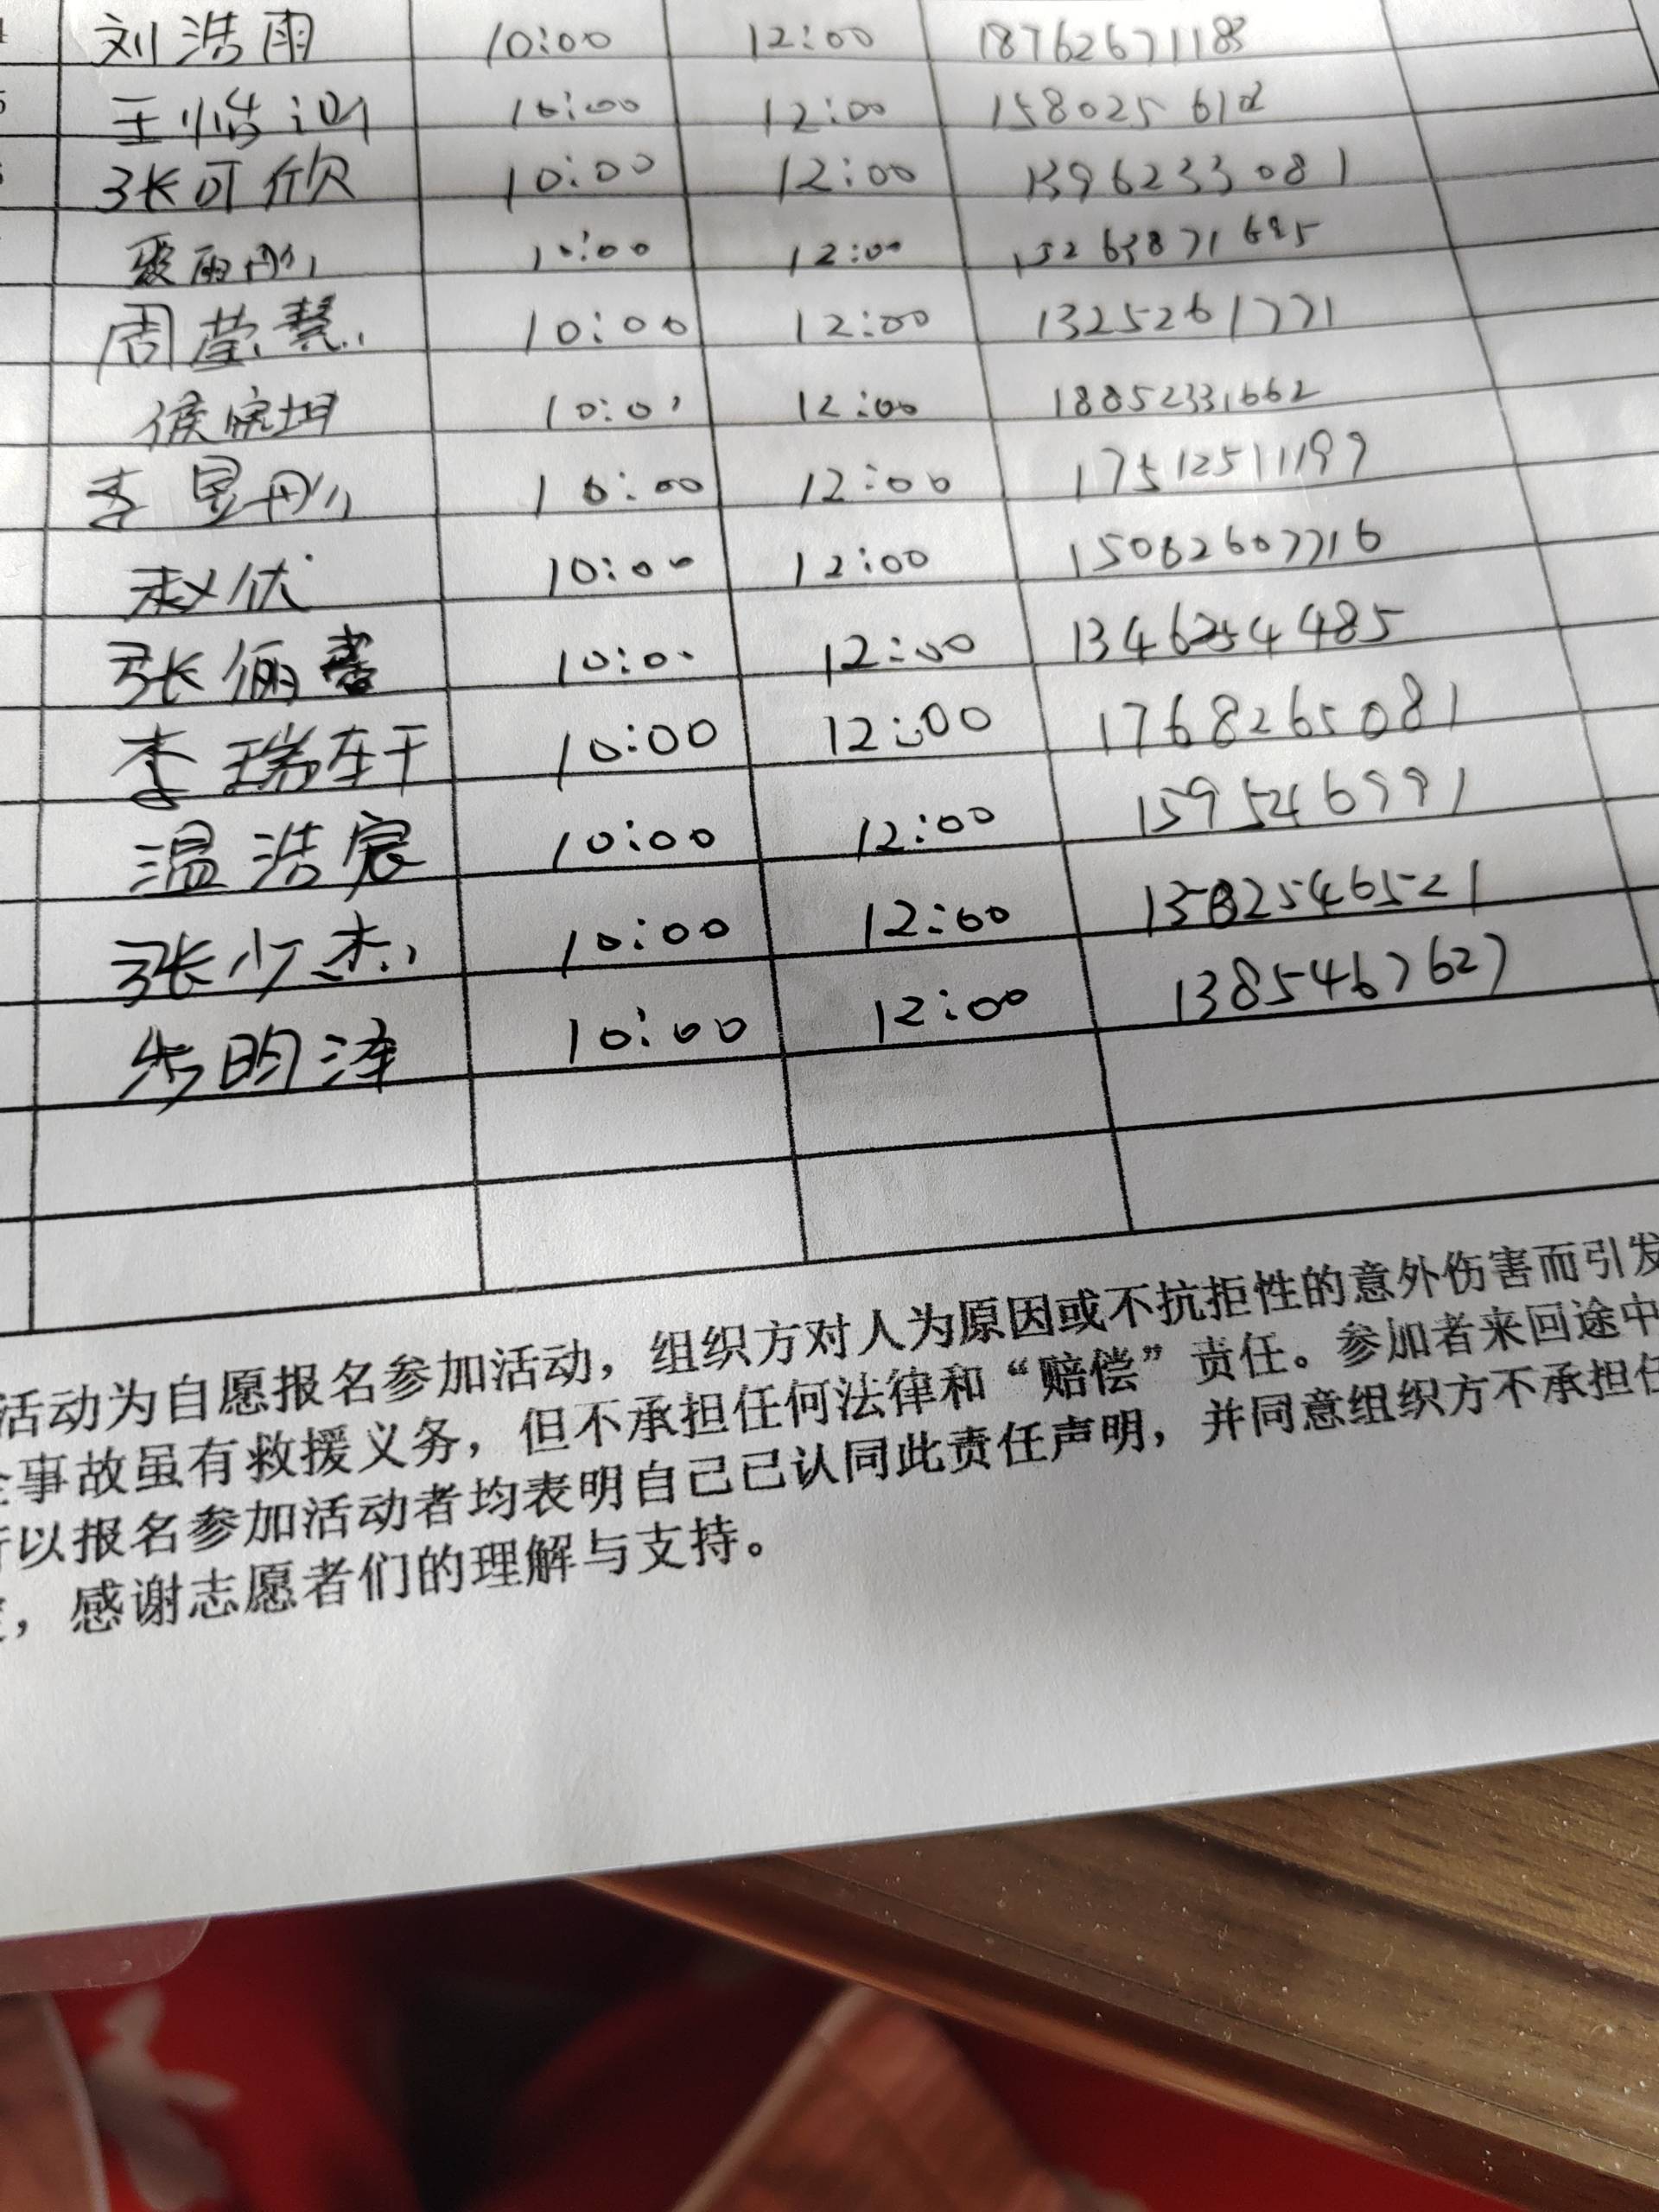 刘浩雨 10:00 12:00 18762671183
王 10:00 12:00 158025
张可欣 10:00 12:00 1396233081
10:00 12:00
周莹慧 10:00 12:00 1325261771
侯 10:0 12:00 18852331662
李昱彤 10:00 12:00 17512511197
赵 10:00 12:00 15062607716
张俪馨 10:0 12:00
李瑞轩 10:00 12:00 1768265081
温浩宸 10:00 12:00
张少杰 10:00 12:00
10:00 12:00 1385467627
活动为自愿报名参加活动，组织方对人为原因或不抗拒性的意外伤害而引发
事故虽有救援义务，但不承担任何法律和“赔偿”责任。参加者来回途中
以报名参加活动者均表明自己已认同此责任声明，并同意组织方不承担任
，感谢志愿者们的理解与支持。